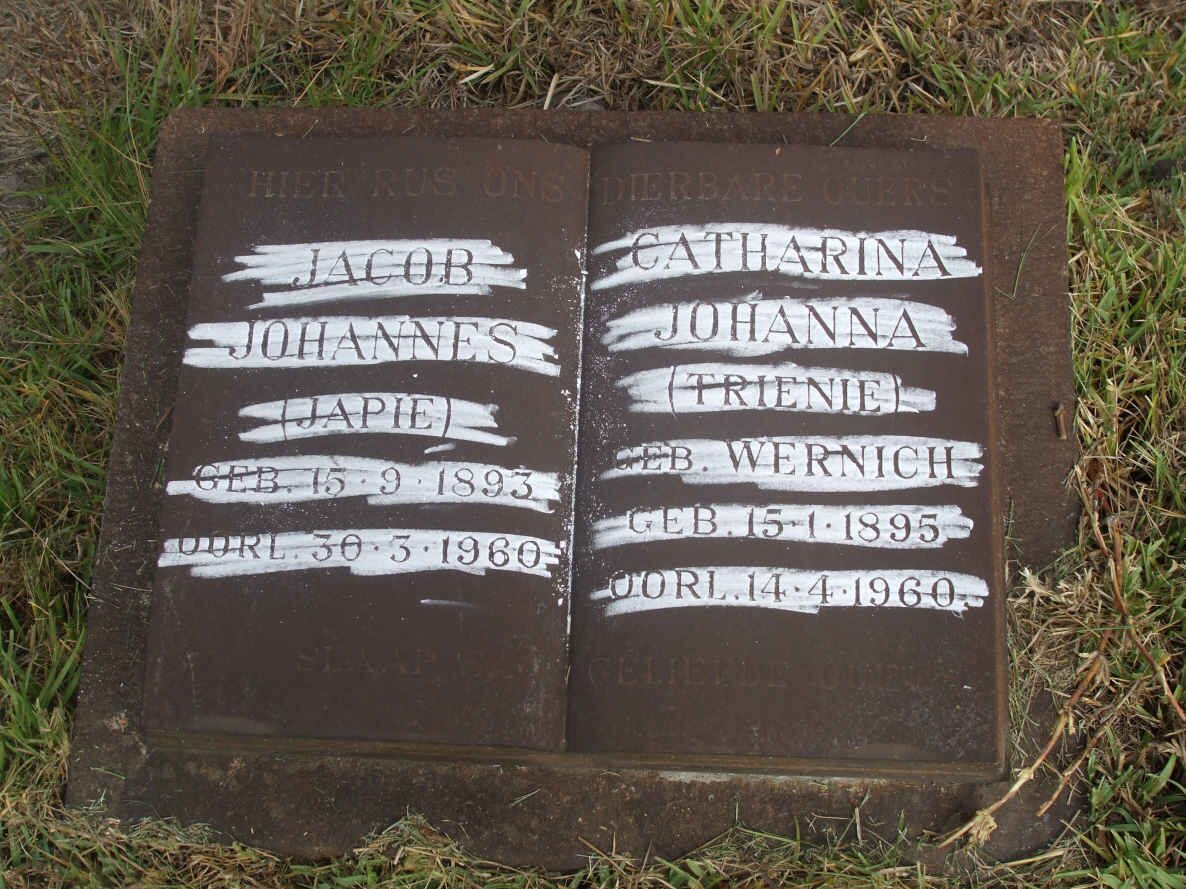 HIER RUS ONS DIERBARE OUERS
JACOB
JOHANNES
(JAPIE)
GEB. 15·9·1893
OORL. 30·3·1960
CATHARINA
JOHANNA
(TRIENIE)
GEB. WERNICH
GEB. 15·1·1895
OORL. 14·4·1960
SLAAP GELIEFDE OUERS